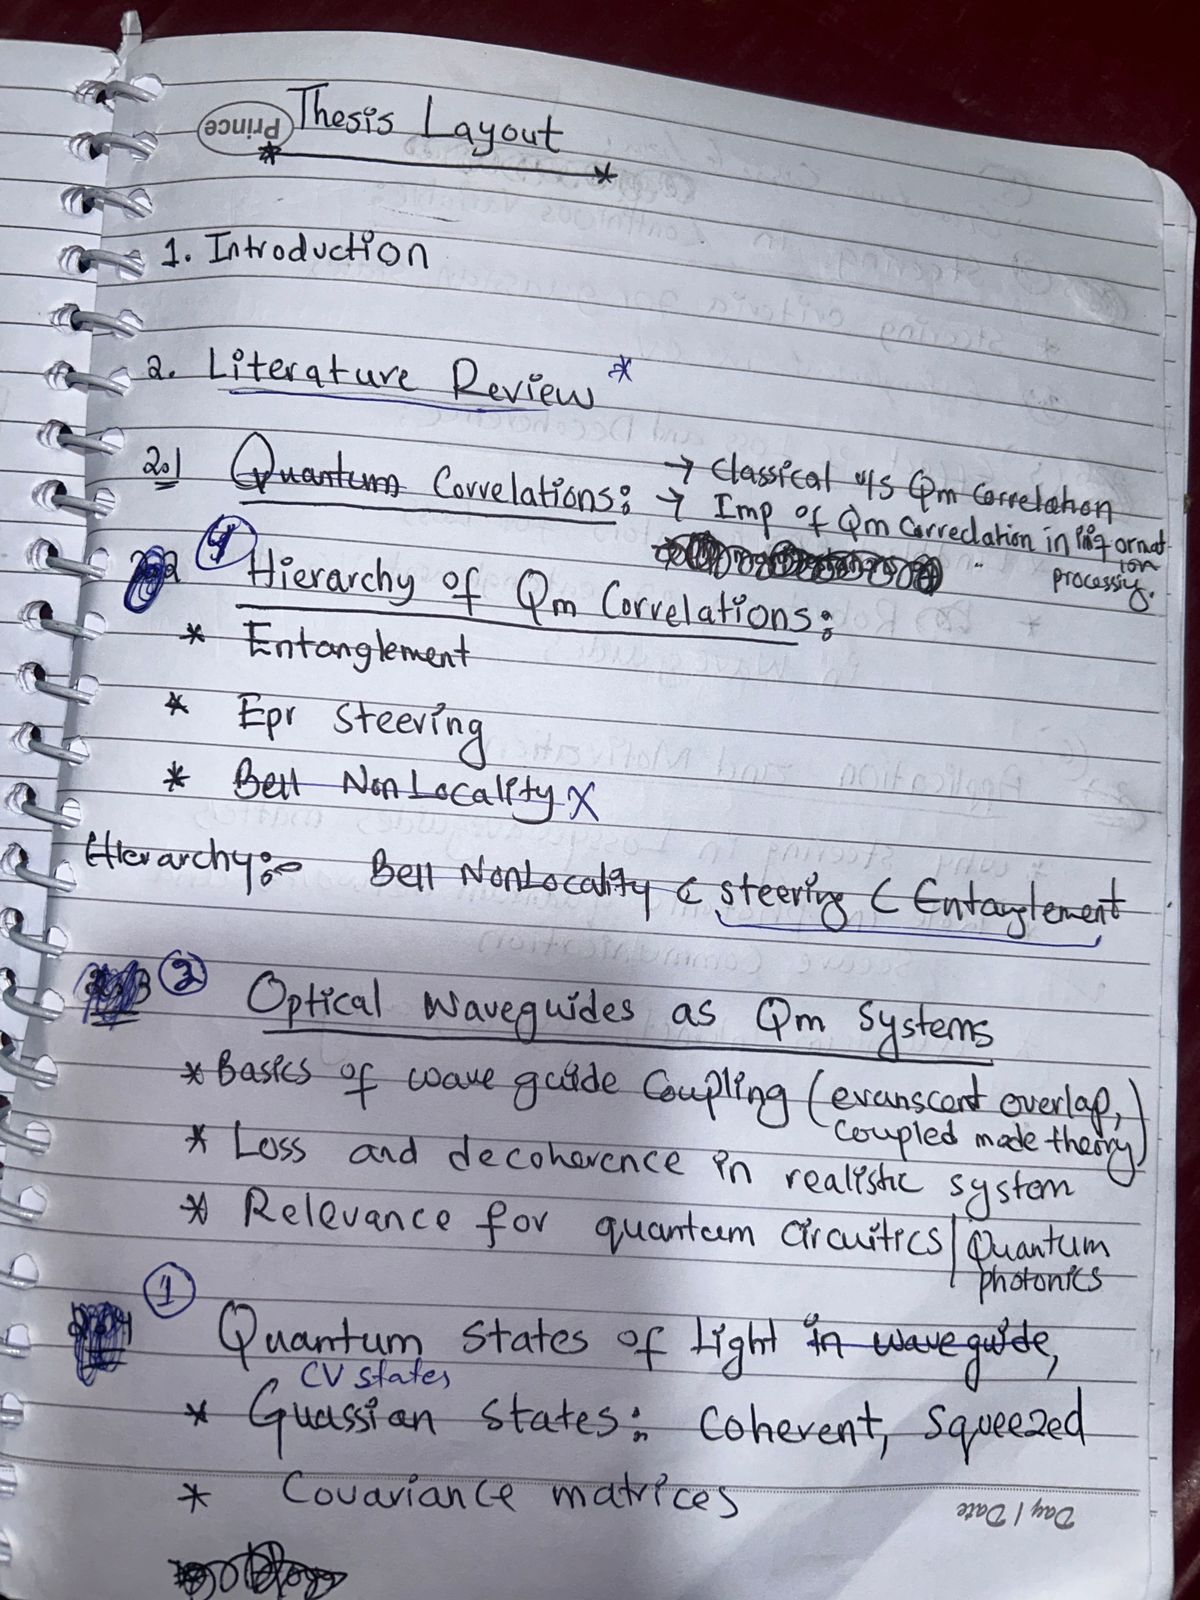 Prince
Thesis Layout
1. Introduction
2. Literature Review *
2.1 Quantum Correlations: → Classical v/s Qm Correlation
→ Imp of Qm Correlation in information
processing.
Hierarchy of Qm Correlations:
* Entanglement
* Epr Steering
* Bell NonLocality X
Hierarchy:- Bell NonLocality ⊂ steering ⊂ Entanglement
2 Optical Waveguides as Qm Systems
* Basics of wave guide Coupling (evanscent overlap,
coupled mode theory)
* Loss and decoherence in realistic system
* Relevance for quantum circuitics | Quantum
photonics
1
Quantum States of Light in wave guide,
CV states
* Guassian states: Coherent, Squeezed
* Covariance matrices
Day / Date